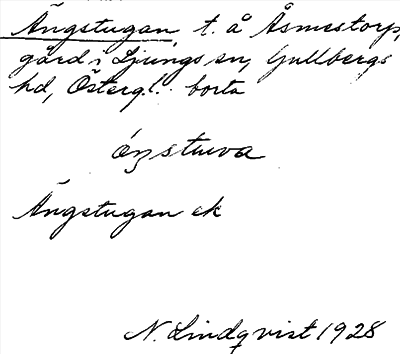 Ängstugan, t. å Åsmestorp,
gård i Ljungs sn, Gullbergs
hd, Österg.l. borta
ónstuva
Ängstugan ek
N. Lindqvist 1928